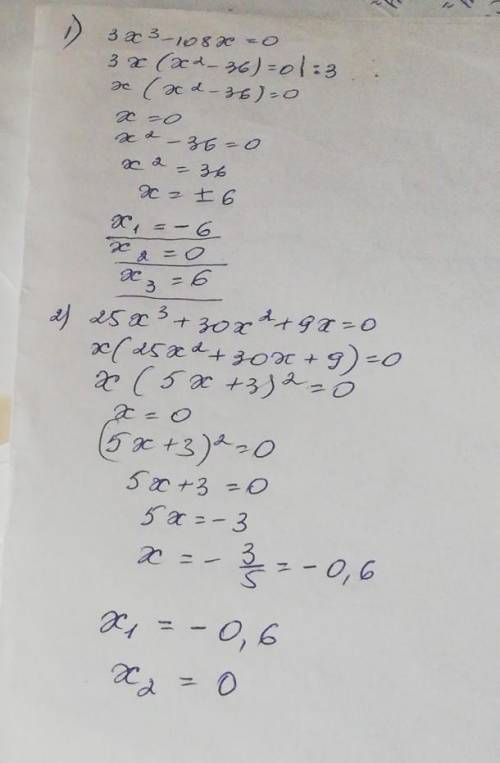 1) 3x³-108x=0
3x(x²-36)=0|:3
x(x²-36)=0
x=0
x²-36=0
x²=36
x=±6
x₁=-6
x₂=0
x₃=6
2) 25x³+30x²+9x=0
x(25x²+30x+9)=0
x(5x+3)²=0
x=0
(5x+3)²=0
5x+3=0
5x=-3
x=-3/5=-0,6
x₁=-0,6
x₂=0